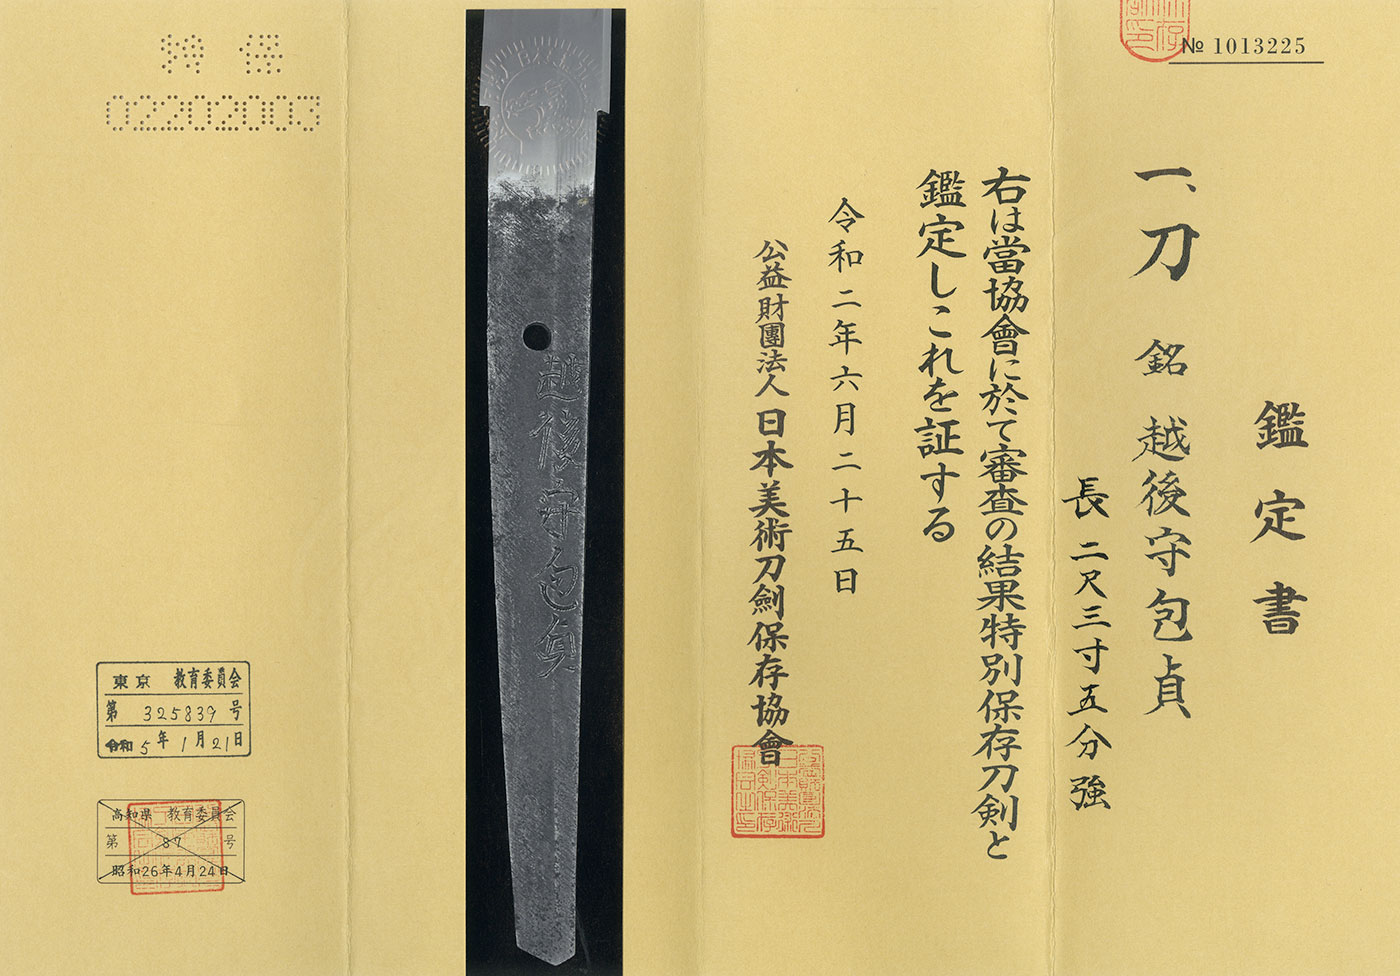 № 1013225
鑑定書
一、刀 銘 越後守包貞
長 二尺三寸五分強
右は當協會に於て審査の結果特別保存刀剣と
鑑定しこれを証する
令和二年六月二十五日
公益財團法人 日本美術刀劍保存協會
越後守包貞
特 保
02202003
東京 教育委員会
第 325839 号
令和5年1月21日
高知県 教育委員会
第 87 号
昭和26年4月24日